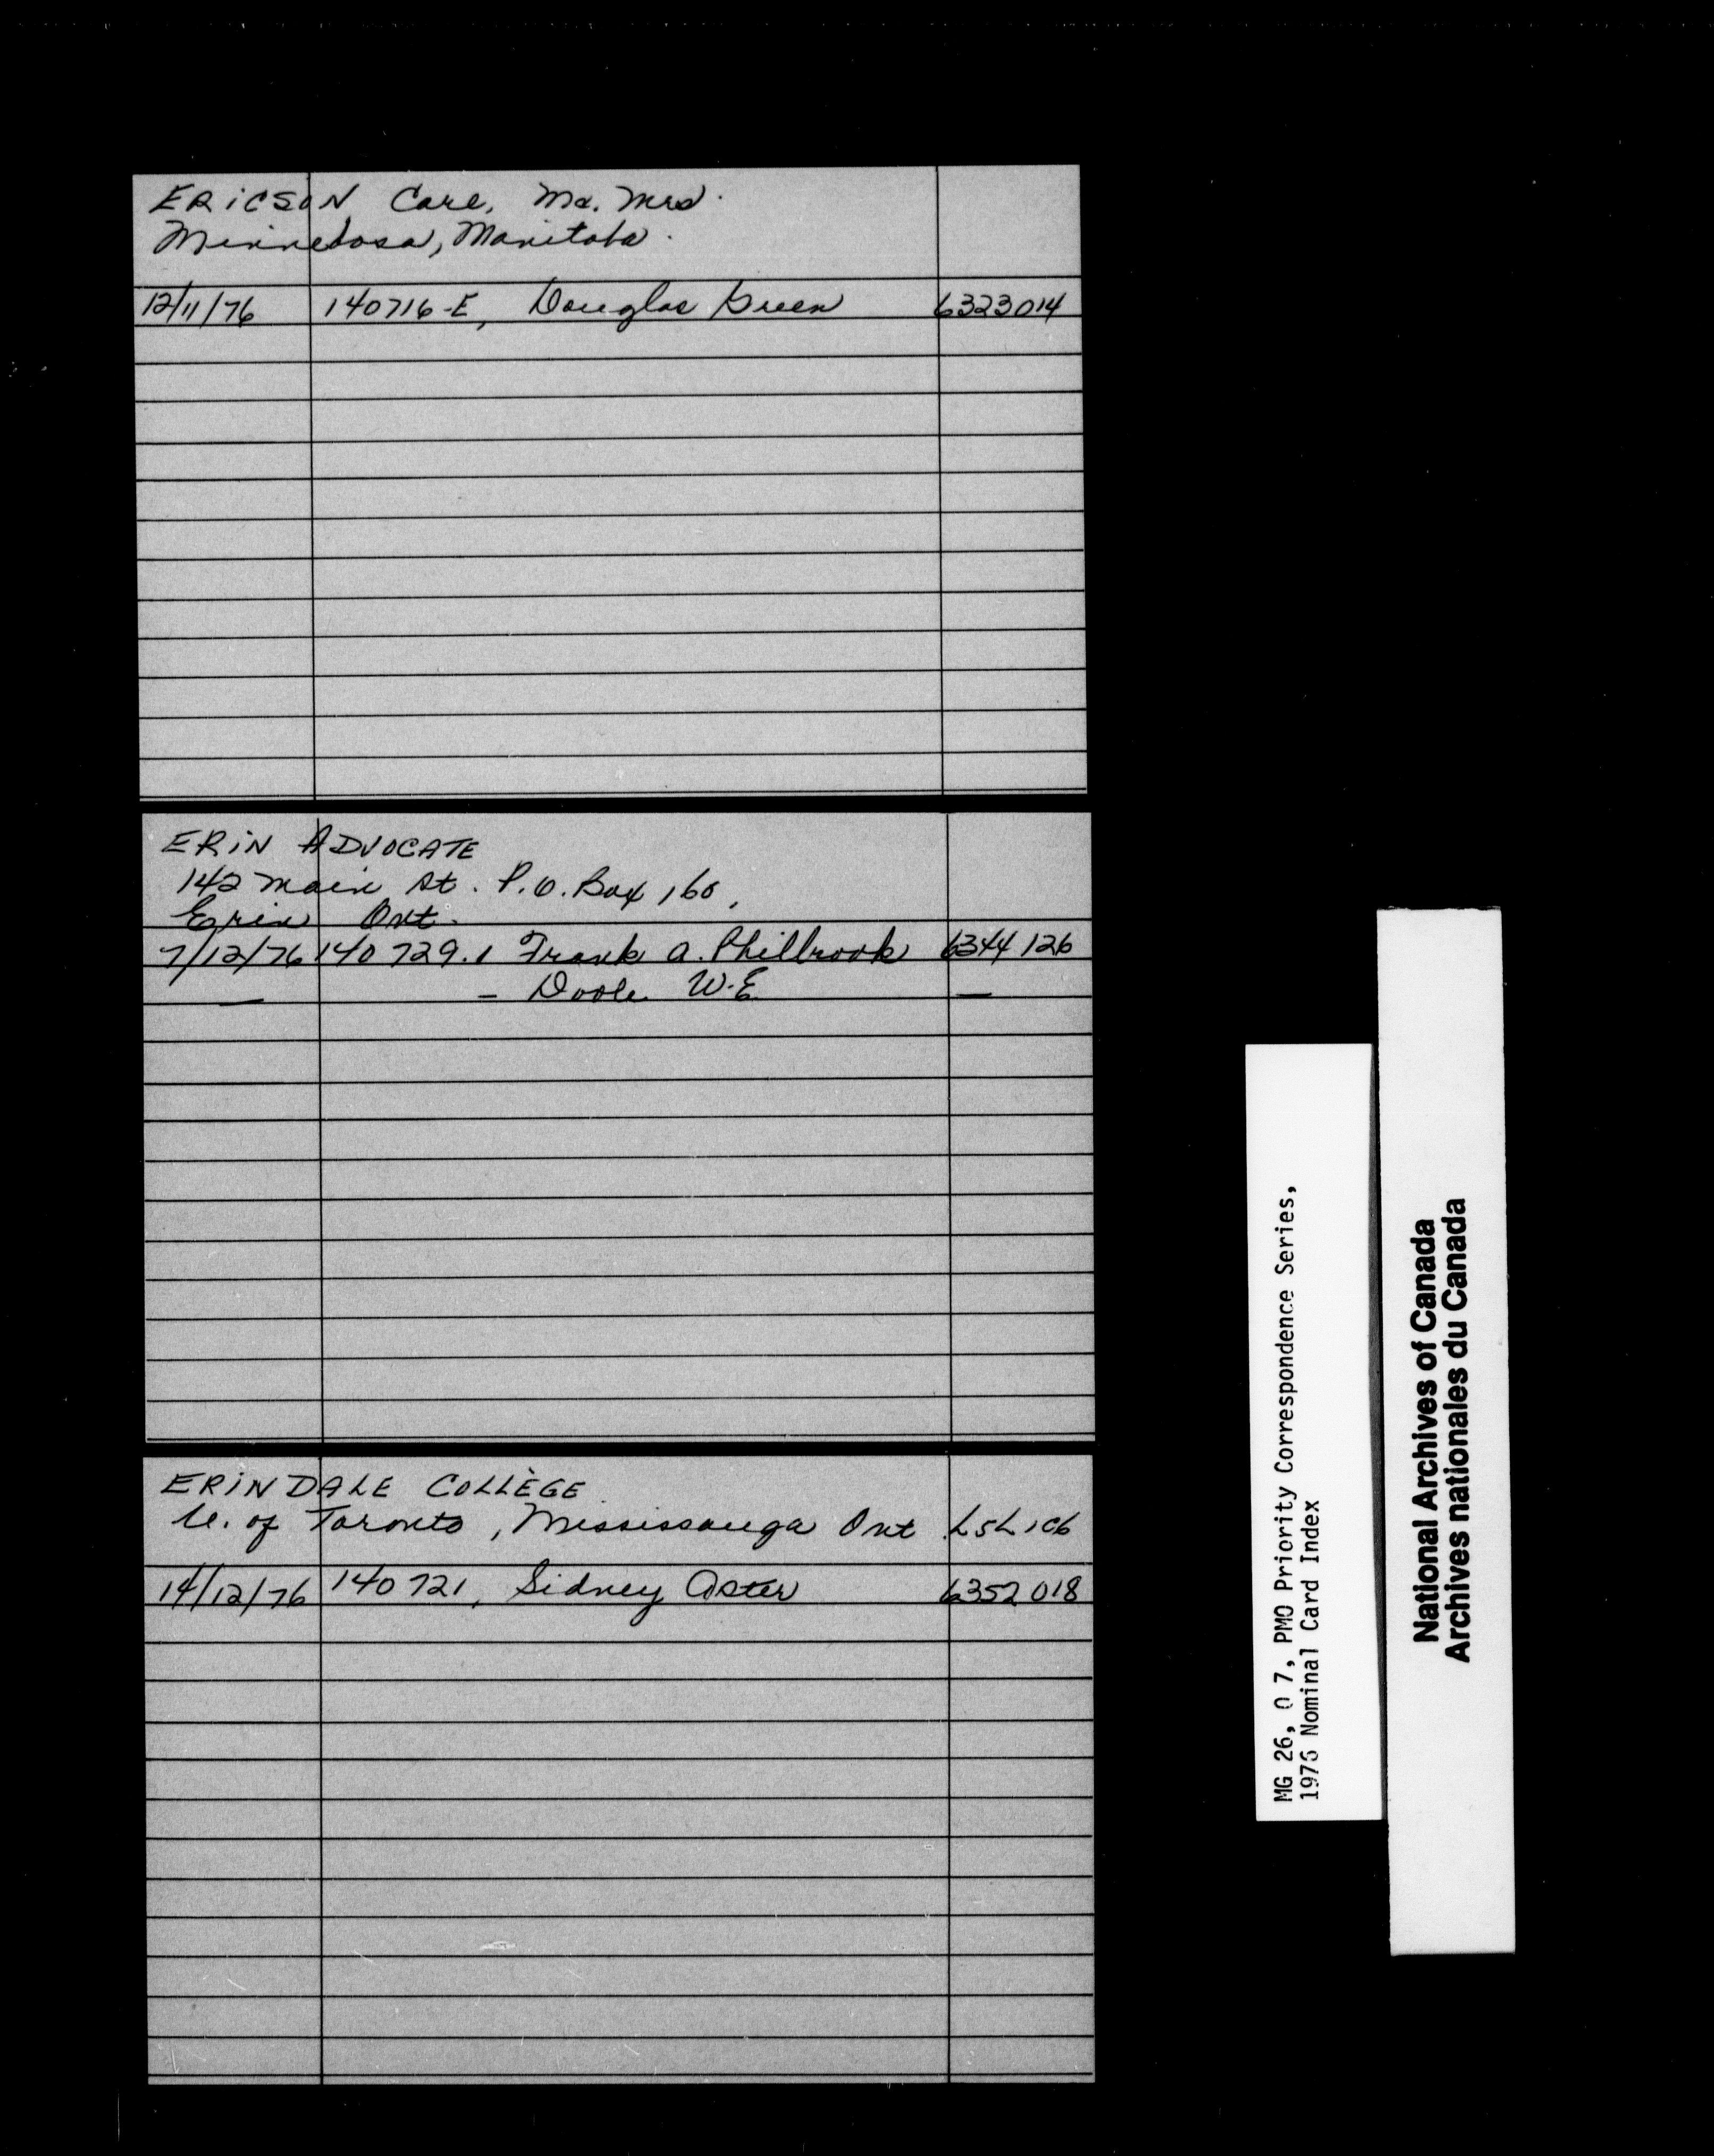 ERICSON Carl, Mr. Mrs.
Minnedosa, Manitoba.
12/11/76 140716-E, Douglas Green 6323014
ERIN ADVOCATE
142 Main St. P.O. Box 160,
Erin Ont.
7/12/76 140 729.1 Frank A. Philbrook 6344 126
— - Doole W.E —
ERINDALE COLLÈGE
U. of Toronto, Mississauga Ont L5L 1C6
14/12/76 140 721, Sidney Aster 6352 018
MG 26, O 7, PMO Priority Correspondence Series,
1976 Nominal Card Index
National Archives of Canada
Archives nationales du Canada